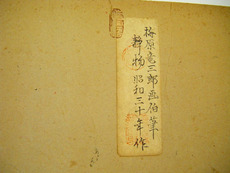 梅原竜三郎画伯筆
静物 昭和三十年作